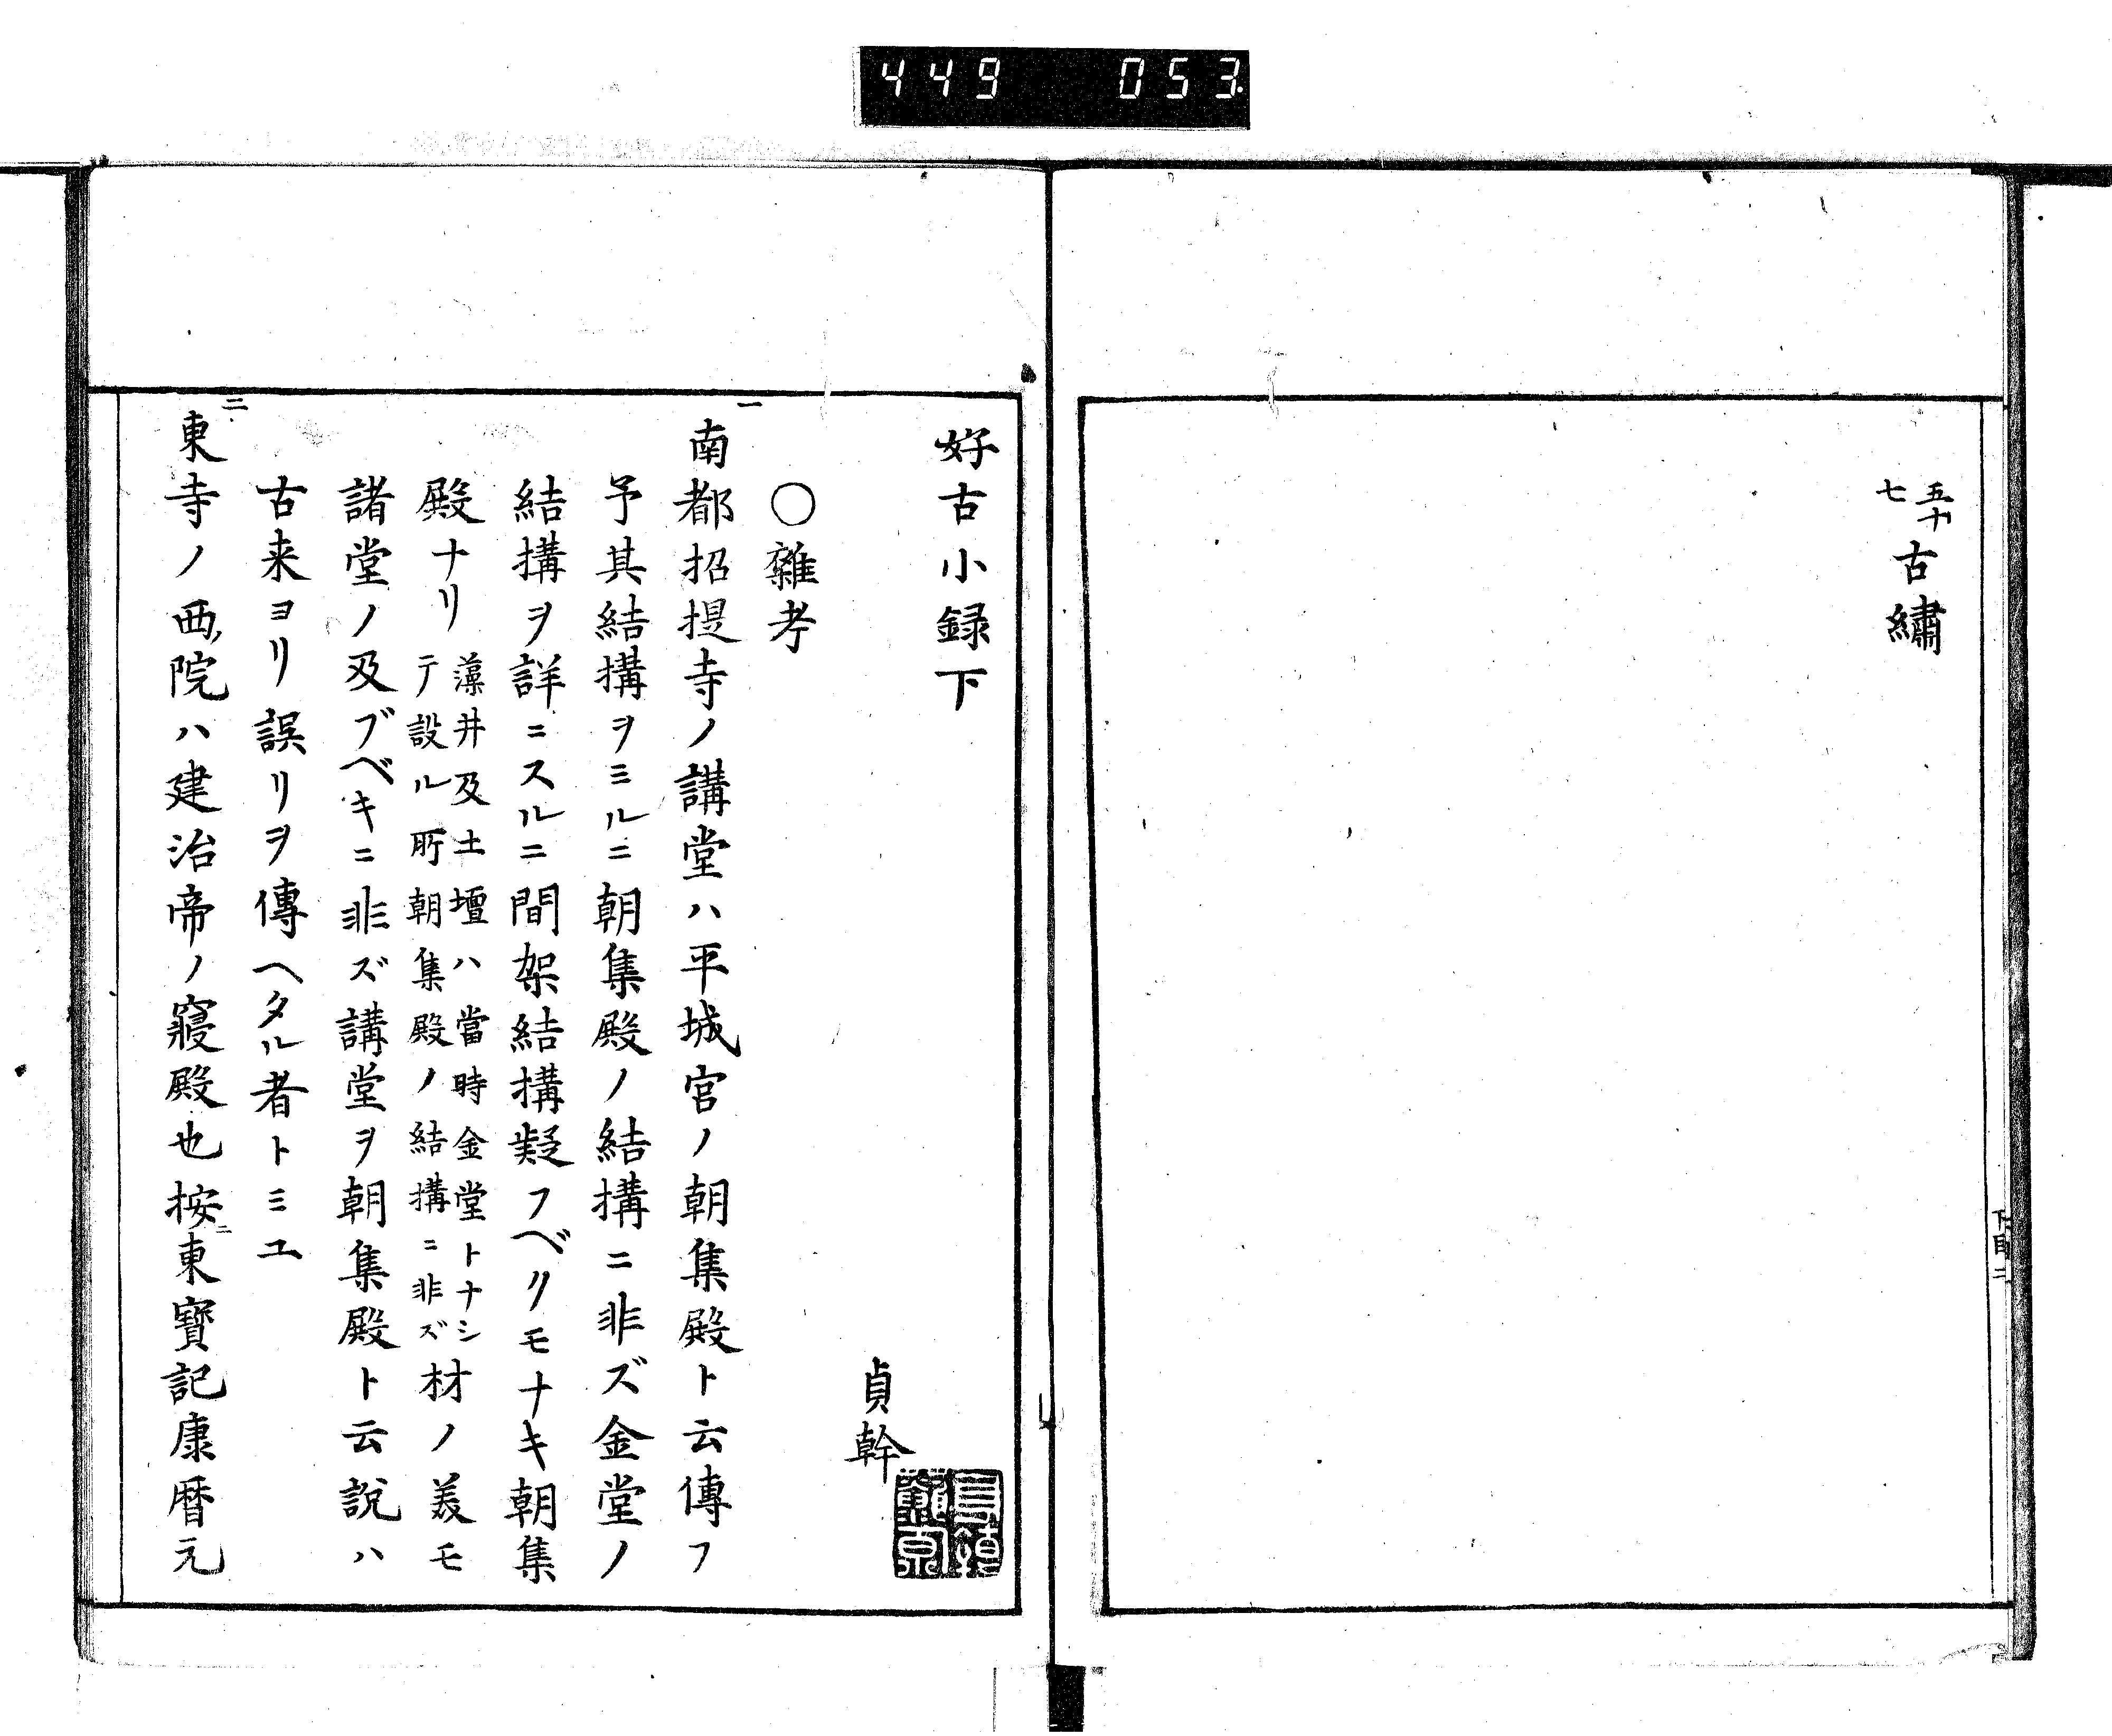 449 053
五十七 古繡
下目 二
好古小録下
貞幹
〇雜考
一
南都招提寺ノ講堂ハ平城宮ノ朝集殿ト云傳フ
予其結搆ヲミルニ朝集殿ノ結搆ニ非ズ金堂ノ
結搆ヲ詳ニスルニ間架結搆疑フベリモナキ朝集
殿ナリ
藻井及土壇ハ當時金堂トナシ
テ設ル所朝集殿ノ結搆ニ非ズ
材ノ美モ
諸堂ノ及ブベキニ非ズ講堂ヲ朝集殿ト云説ハ
古来ヨリ誤リヲ傳ヘタル者トミユ
二
東寺ノ西院ハ建治帝ノ寢殿也按ニ東寶記康暦元